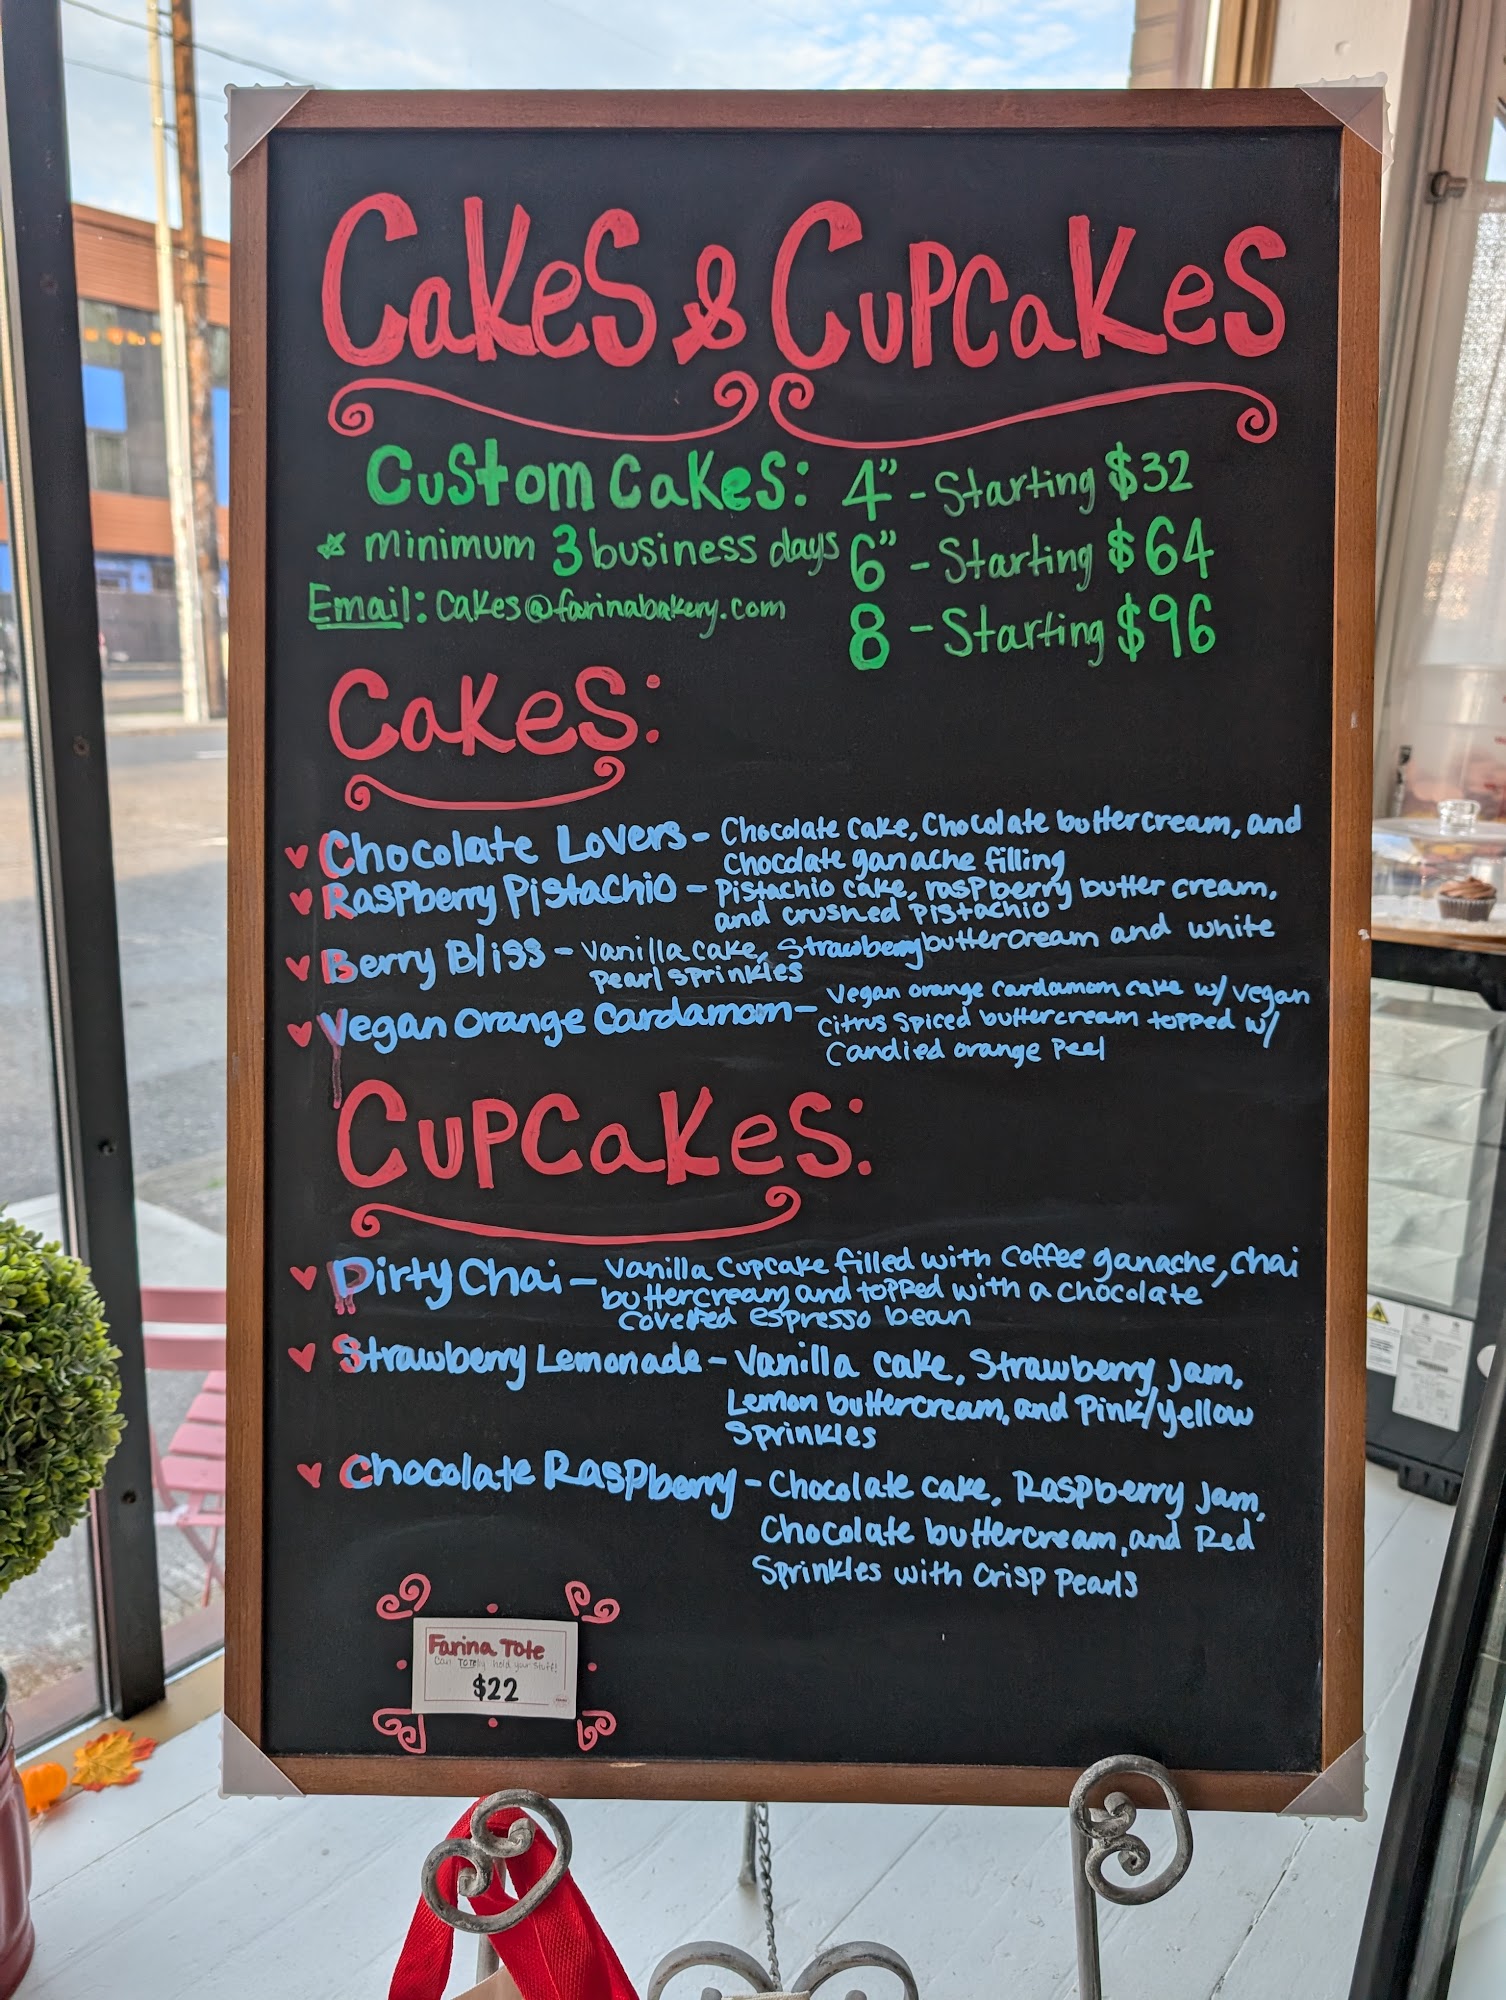 Cakes & Cupcakes
Custom Cakes: 4" - Starting $32
* minimum 3 business days 6" - Starting $64
Email: cakes@farinabakery.com
8 - Starting $96
Cakes:
♥ Chocolate Lovers - Chocolate cake, Chocolate buttercream, and
Chocolate ganache filling
♥ Raspberry Pistachio - Pistachio cake, raspberry butter cream,
and crushed pistachio
♥ Berry Bliss - Vanilla cake, Strawberry buttercream and white
pearl sprinkles
♥ Vegan Orange Cardamom - Vegan orange cardamom cake w/ vegan
citrus spiced buttercream topped w/
Candied orange peel
Cupcakes:
♥ Dirty Chai - Vanilla Cupcake filled with coffee ganache, chai
buttercream and topped with a chocolate
covered espresso bean
♥ Strawberry Lemonade - Vanilla cake, Strawberry jam,
Lemon buttercream, and Pink/yellow
Sprinkles
♥ Chocolate Raspberry - Chocolate cake, Raspberry jam,
Chocolate buttercream, and Red
Sprinkles with crisp pearls
Farina Tote
Can TOTEly hold your stuff!
$22